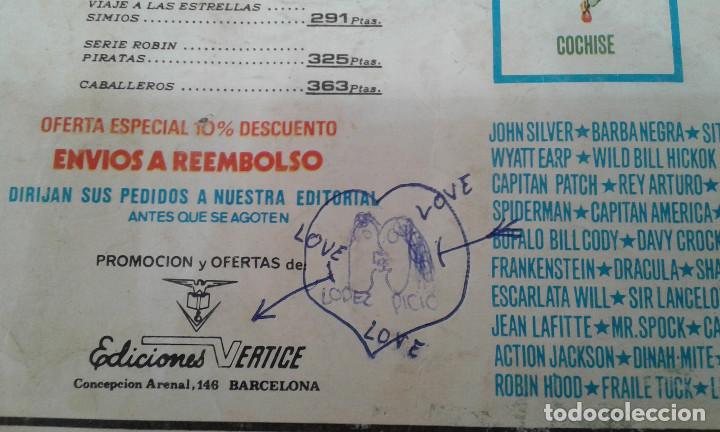 VIAJE A LAS ESTRELLAS
SIMIOS 291 Ptas.
SERIE ROBIN
PIRATAS. 325 Ptas.
CABALLEROS 363 Ptas.
OFERTA ESPECIAL 10% DESCUENTO
ENVIOS A REEMBOLSO
DIRIJAN SUS PEDIDOS A NUESTRA EDITORIAL
ANTES QUE SE AGOTEN
PROMOCION y OFERTAS de:
Ediciones VERTICE
Concepcion Arenal, 146 BARCELONA
LOVE
LOVE
LOPEZ PICIO
LOVE
COCHISE
JOHN SILVER★BARBANEGRA★SIT
WYATT EARP★WILD BILL HICKOK
CAPITAN PATCH★REY ARTURO★
SPIDERMAN★CAPITAN AMERICA★
BUFALO BILL CODY★DAVY CROCK
FRANKENSTEIN★DRACULA★SHA
ESCARLATA WILL★SIR LANCELO
JEAN LAFITTE★MR. SPOCK★CA
ACTION JACKSON★DINAH-MITE★
ROBIN HOOD★FRAILE TUCK★L
todocoleccion.net